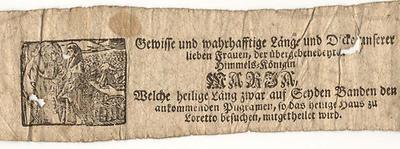 Gewisse und wahrhafftige Länge und Dicke unserer
lieben Frauen, der übergebenedeyten
Himmels-Königin
MARIA,
Welche heilige Läng zwar auf Seyden Banden den
ankommenden Pilgramen, so das heilige Haus zu
Loretto besuchen, mitgetheilet wird.